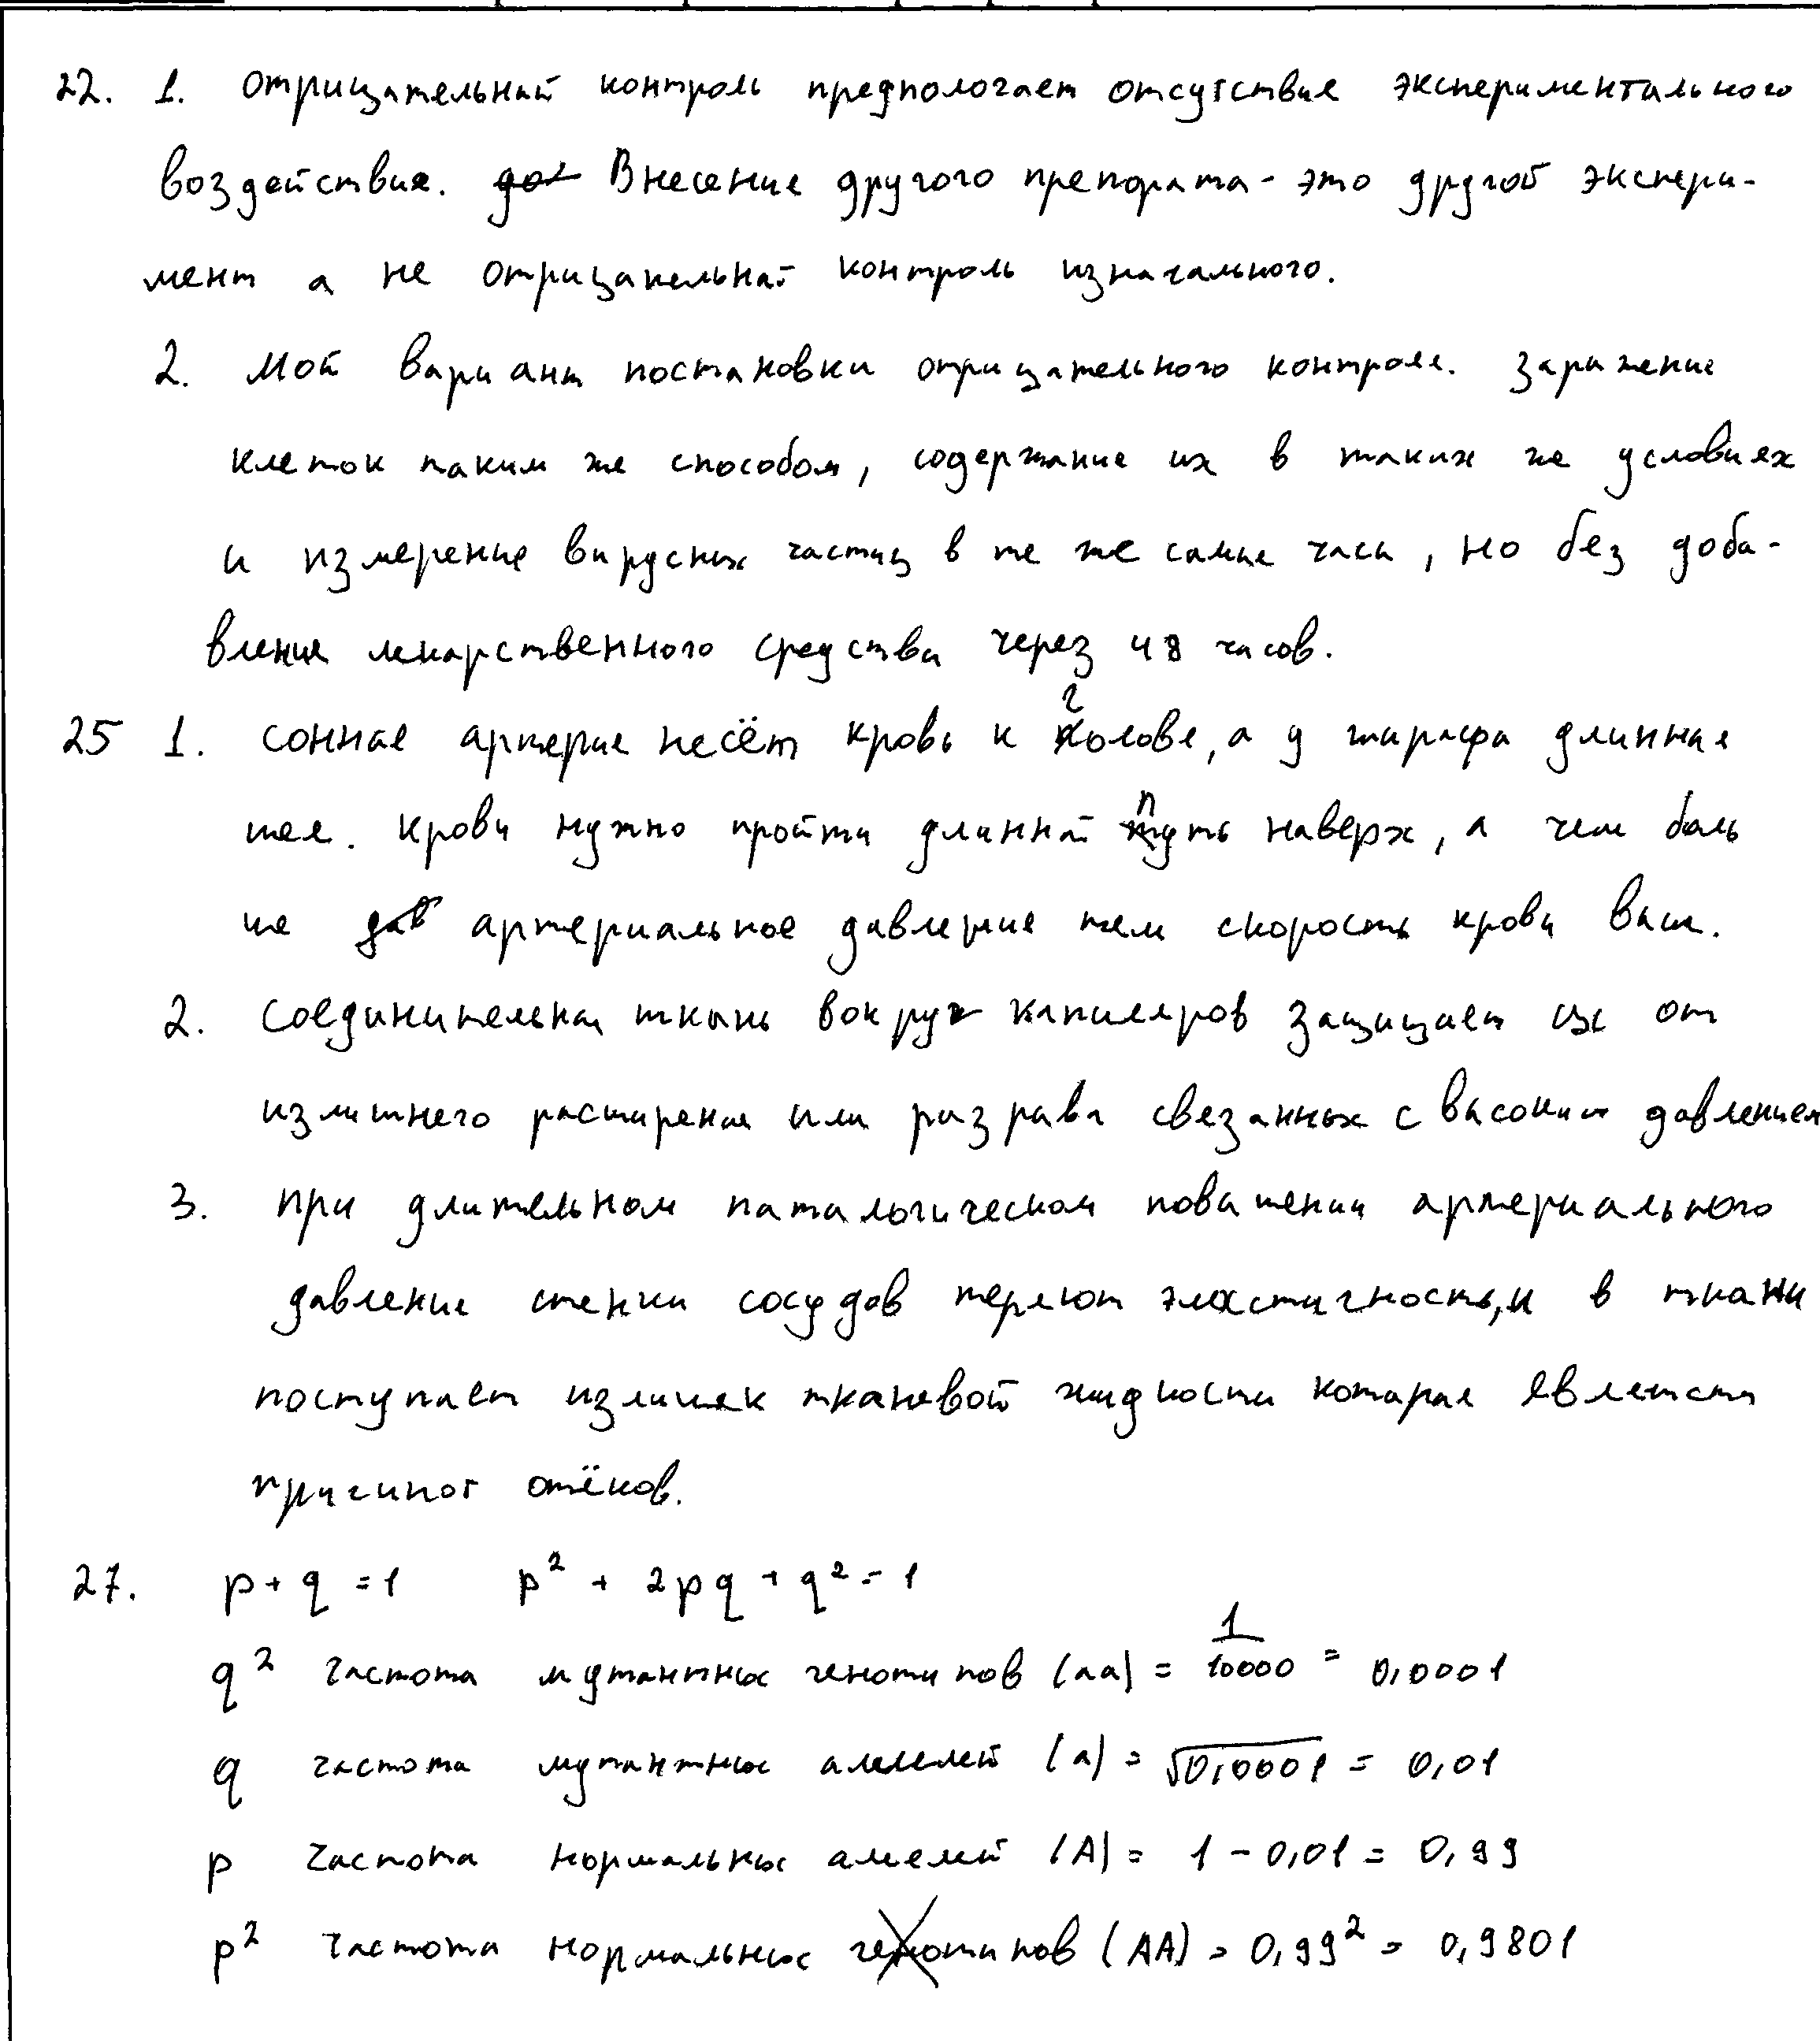 22. 1. Отрицательный контроль предпологает отсутствие экспериментального
воздействия. Внесение другого препората - это другой экспери-
мент а не отрицательный контроль изначального.
2. Мой вариант постановки отрицательного контроля. Заражение
клеток таким же способом, содержание их в таких же условиях
и измерение вирусных частиц в те же самые часы, но без доба-
вления лекарственного средства через 48 часов.
25 1. Сонная артерия несёт кровь к голове, а у жирафа длинная
шея. Крови нужно пройти длинный путь наверх, а чем боль
ше артериальное давление тем скорость крови выше.
2. Соединительная ткань вокруг капиляров защищает их от
излишнего расширения или разрыва связанных с высоким давлением
3. При длительном патальгическом повышении артериального
давления стенки сосудов теряют эластичность, и в ткани
поступает излишек тканевой жидкости которая является
причиной отёков.
27. p + q = 1 p² + 2pq + q² = 1
q² частота мутантных генотипов (aa) = 1/10000 = 0,0001
q частота мутантных аллелей (a) = √0,0001 = 0,01
p частота нормальных аллелей (A) = 1 - 0,01 = 0,99
p² частота нормальных генотипов (AA) = 0,99² = 0,9801